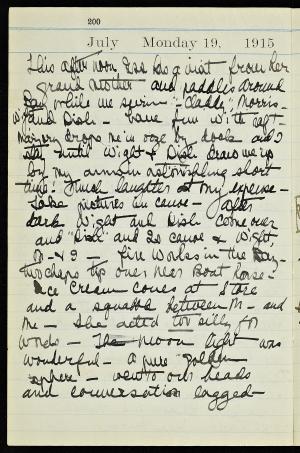 200
July Monday 19, 1915
This afternoon Esa has a visit from her
grand mother and paddles around
Bay while we swim "Daddy" Morris-
Wt and Dish - have fun with Capt-
drops me in ooze by dock and I
until Wight & Dish draw me up
by my arms in short
time! Much laughter at my expense-
Take pictures in canoe - after
dark Wight and Dish come over
and "Dish" and Es canoe & Wight,
M- & I - Fire Works in the Bay-
two chaps tip over near Boat house-
Ice Cream cones at Store
and a squabble between M- and
me - She acted too silly for
words - The moon light was
wonderful - a pure golden
sphere - went to our heads
and conversation lagged-